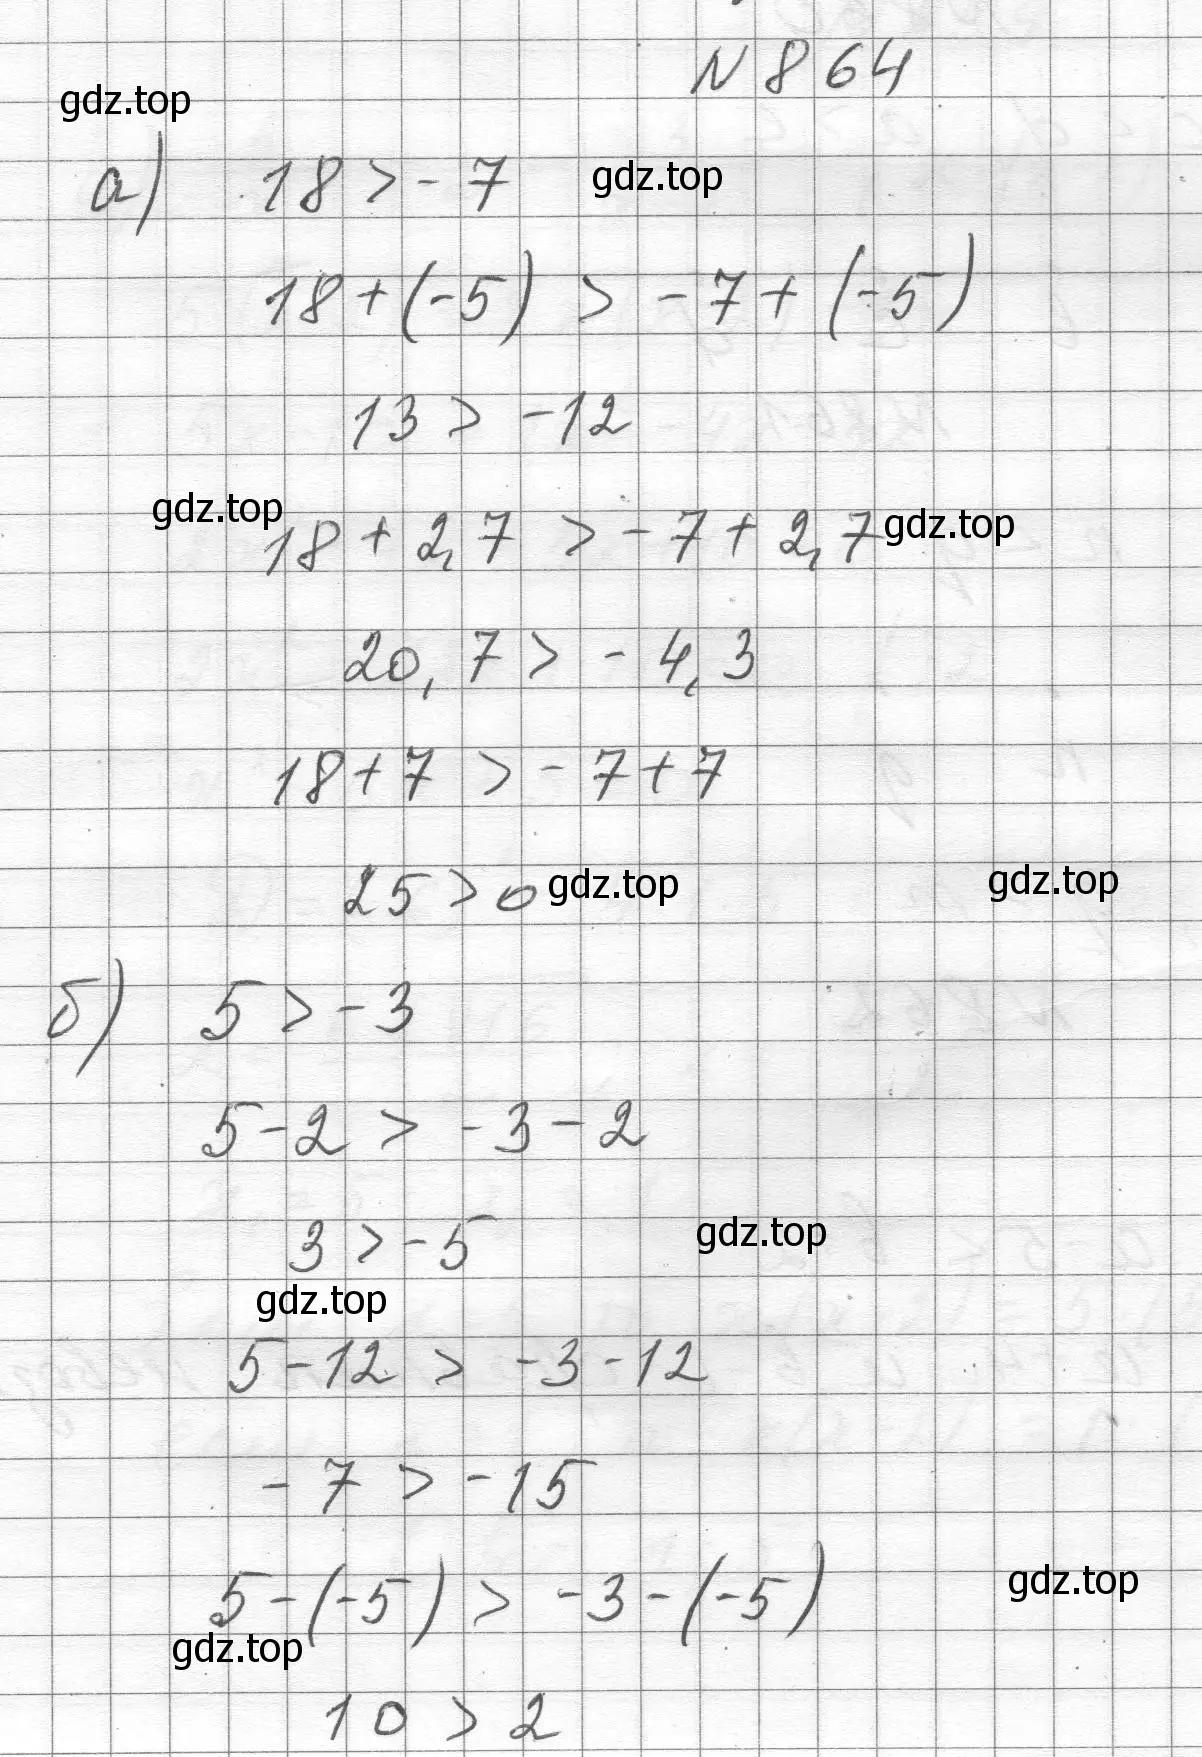 N 864
gdz.top
а) 18 > -7 gdz.top
18 + (-5) > -7 + (-5)
13 > -12
gdz.top
18 + 2,7 > -7 + 2,7 gdz.top
20,7 > -4,3
18 + 7 > -7 + 7
25 > 0 gdz.top gdz.top
б) 5 > -3
5 - 2 > -3 - 2
3 > -5 gdz.top
gdz.top
5 - 12 > -3 - 12
-7 > -15
5 - (-5) > -3 - (-5) gdz.top
gdz.top
10 > 2